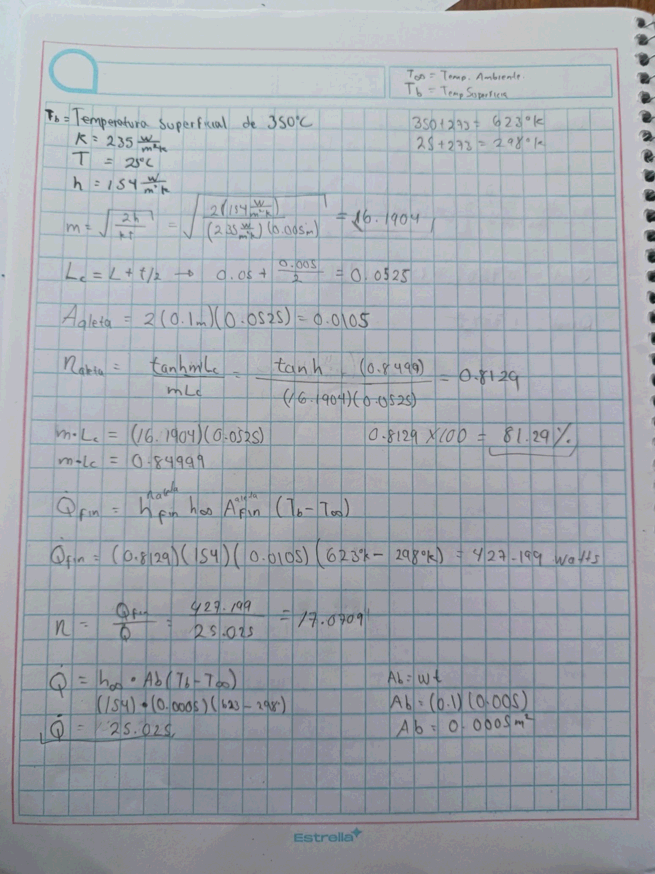 T∞ = Temp. Ambiente.
Tb = Temp Superficia
Tb = Temperatura Superficial de 350°C
350+273 = 623°k
K = 235 W/m²k
25+273 = 298°k
T = 25°C
h = 154 W/m²k
m = √(2h/kt) = √(2(154 W/m²k)/(235 W/m²k)(0.005m)) = 16.1904
Lc = L + t/2 → 0.05 + 0.005/2 = 0.0525
Aaleta = 2(0.1m)(0.0525) = 0.0105
naleta = tanhmLc/mLc = tanh (0.8499)/(16.1904)(0.0525) = 0.8129
m·Lc = (16.1904)(0.0525)
0.8129 X100 = 81.29%
m·Lc = 0.84999
Q̇fin = hfin h∞ Afin (Tb-T∞)
Q̇fin = (0.8129)(154)(0.0105)(623°k - 298°k) = 427.199 watts
n = Qfin/Q̇ = 427.199/25.025 = 17.0709
Q̇ = h∞ · Ab(Tb-T∞)
Ab = wt
(154)·(0.0005)(623-298)
Ab = (0.1)(0.005)
Q̇ = 25.025
Ab = 0.0005m²
Estrella